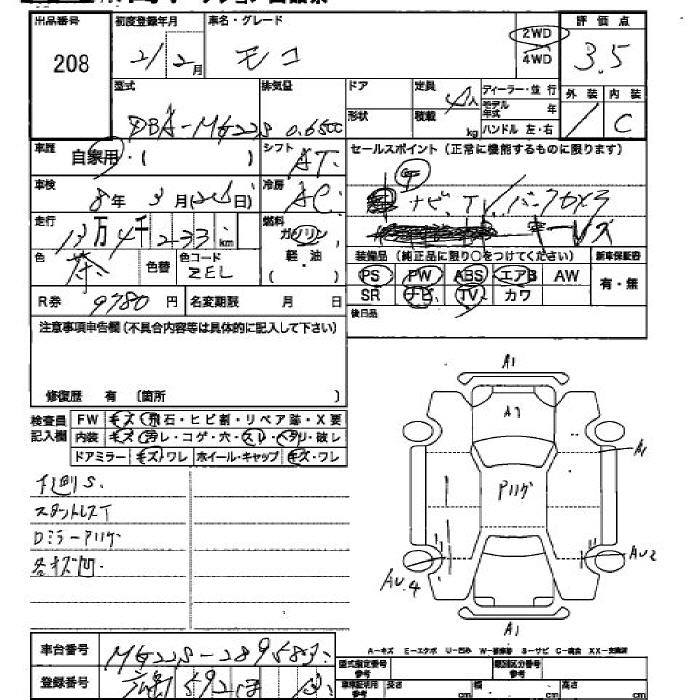 出品番号
208
初度登録年月
21/2月
車名・グレード
モコ
2WD
4WD
評価点
3.5
外装 内装
C
型式
DBA-MG22S
排気量
0.6500
ドア
形状
定員
4人
積載
kg
ディーラー・並行
モデル年式 年
ハンドル 左・右
車歴
自家用・( )
シフト
AT
セールスポイント (正常に機能するものに限ります)
ナビ、TV、バックカメラ
キーレス
車検
8年3月( 日)
冷房
AC
走行
13万4千233km
燃料
ガソリン
軽・油
( )
色
茶
色替
色コード
ZEL
装備品 (純正品に限り○をつけてください)
新車保証書
PS PW ABS エアB AW
SR ナビ、 TV、 カワ
有・無
R券 9780円
名変期限 月 日
後日品
注意事項申告欄(不具合内容等は具体的に記入して下さい)
修復歴 有 〔箇所 〕
検査員記入欄
FW キズ・飛石・ヒビ割・リペア跡・X要
内装 キズ・ヨレ・コゲ・穴・スレ・ヘタリ・破レ
ドアミラー キズ・ワレ ホイール・キャップ キズ・ワレ
下廻りS.
スタットレスT
Dミラーアリゲ
各キズ凹
A1
A1
アリゲ
A1
AU2
AU.4
A1
車台番号
MG22S-289583
登録番号
592
A-キズ E-エクボ U-凹み W-補修跡 S-サビ C-腐食 XX-交換済
型式指定番号
参考
類別区分番号
参考
長さ cm 幅 cm 高さ cm